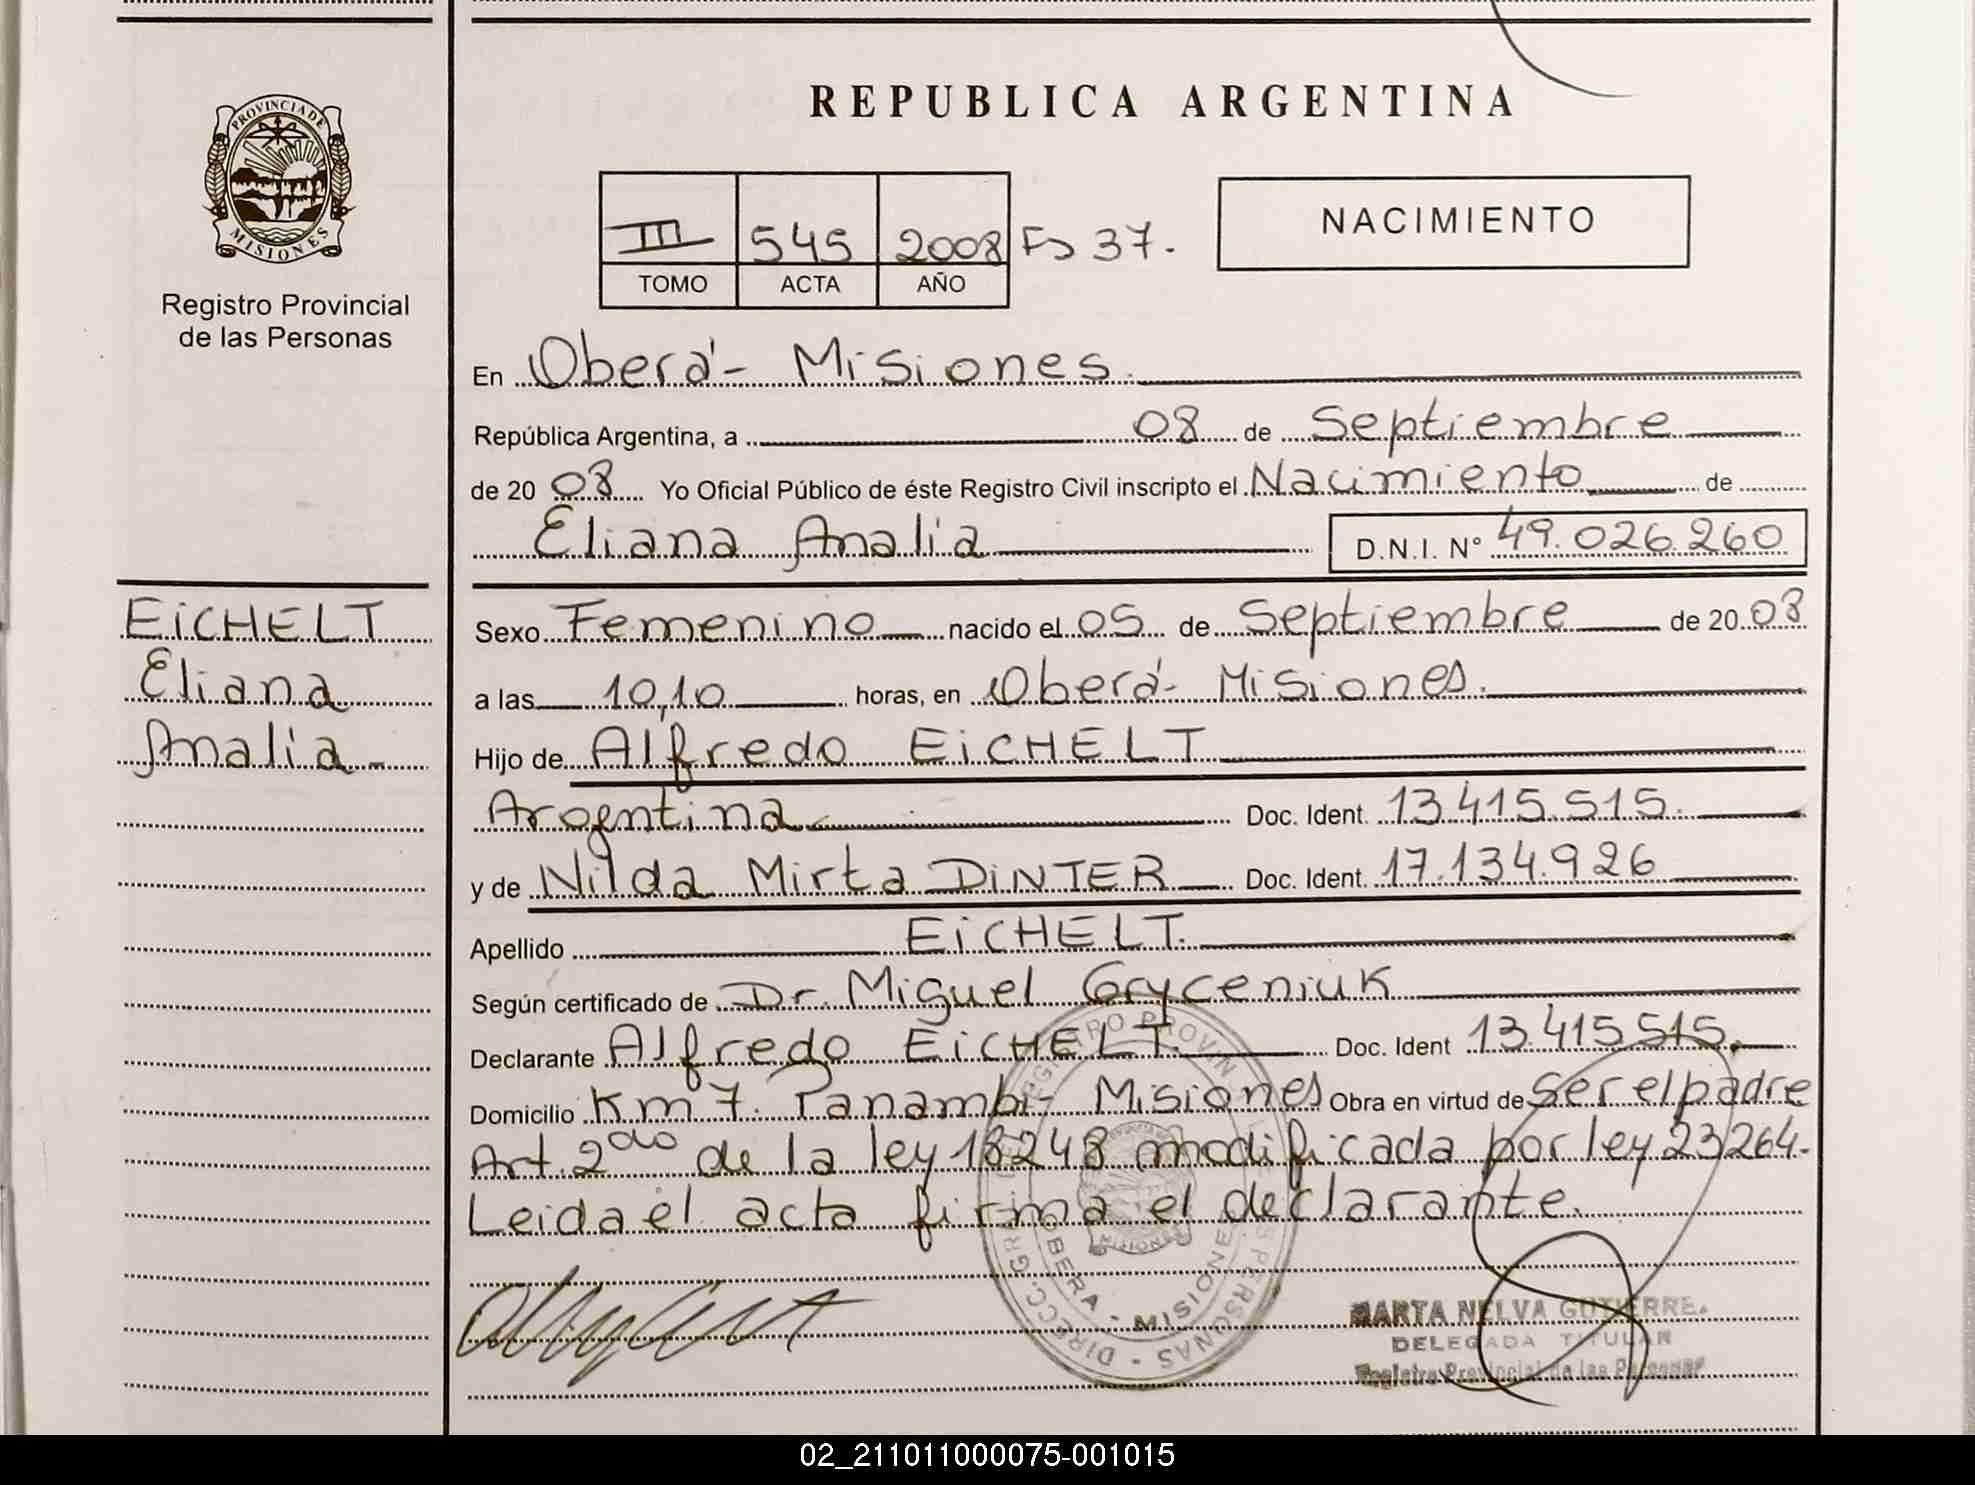 PROVINCIA DE
MISIONES
Registro Provincial
de las Personas
EiCHELT
Eliana
Analia
REPUBLICA ARGENTINA
III 545 2008 Fs 37.
TOMO ACTA AÑO
NACIMIENTO
En Oberá - Misiones.
República Argentina, a 08 de Septiembre
de 20 08 Yo Oficial Público de éste Registro Civil inscripto el Nacimiento de
Eliana Analia D.N.I. N° 49.026.260
Sexo Femenino nacido el 05 de Septiembre de 20 08
a las 10,10 horas, en Oberá - Misiones.
Hijo de Alfredo EiCHELT
Argentina Doc. Ident. 13.415.515.
y de Nilda Mirta DiNTER Doc. Ident. 17.134.926
Apellido EiCHELT.
Según certificado de Dr. Miguel Gryceniuk
Declarante Alfredo EiCHELT. Doc. Ident 13.415.515.
Domicilio Km 7. Panambi - Misiones Obra en virtud de Ser el padre
Art. 2do de la ley 18248 modificada por ley 23264.
Leida el acta firma el declarante.
OBERA - MISIONES
MARTA NELVA GUTIERRE.
DELEGADA TITULAR
Registro Provincial de las Personas
02_211011000075-001015